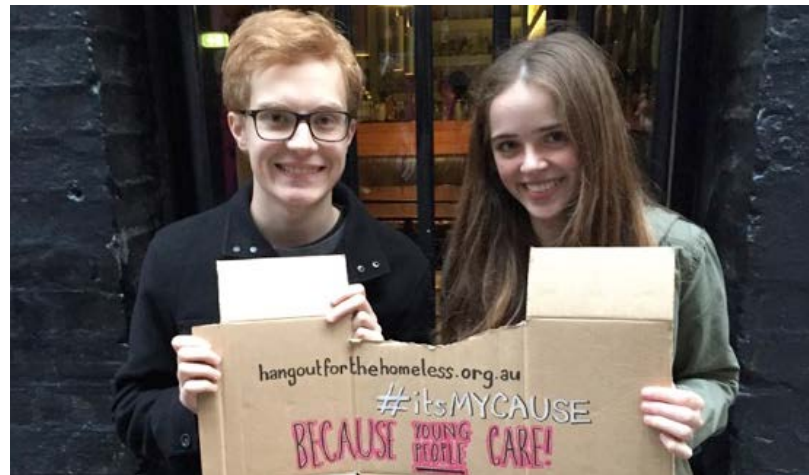 hangoutforthehomeless.org.au
#itsMYCAUSE
BECAUSE YOUNG PEOPLE CARE!